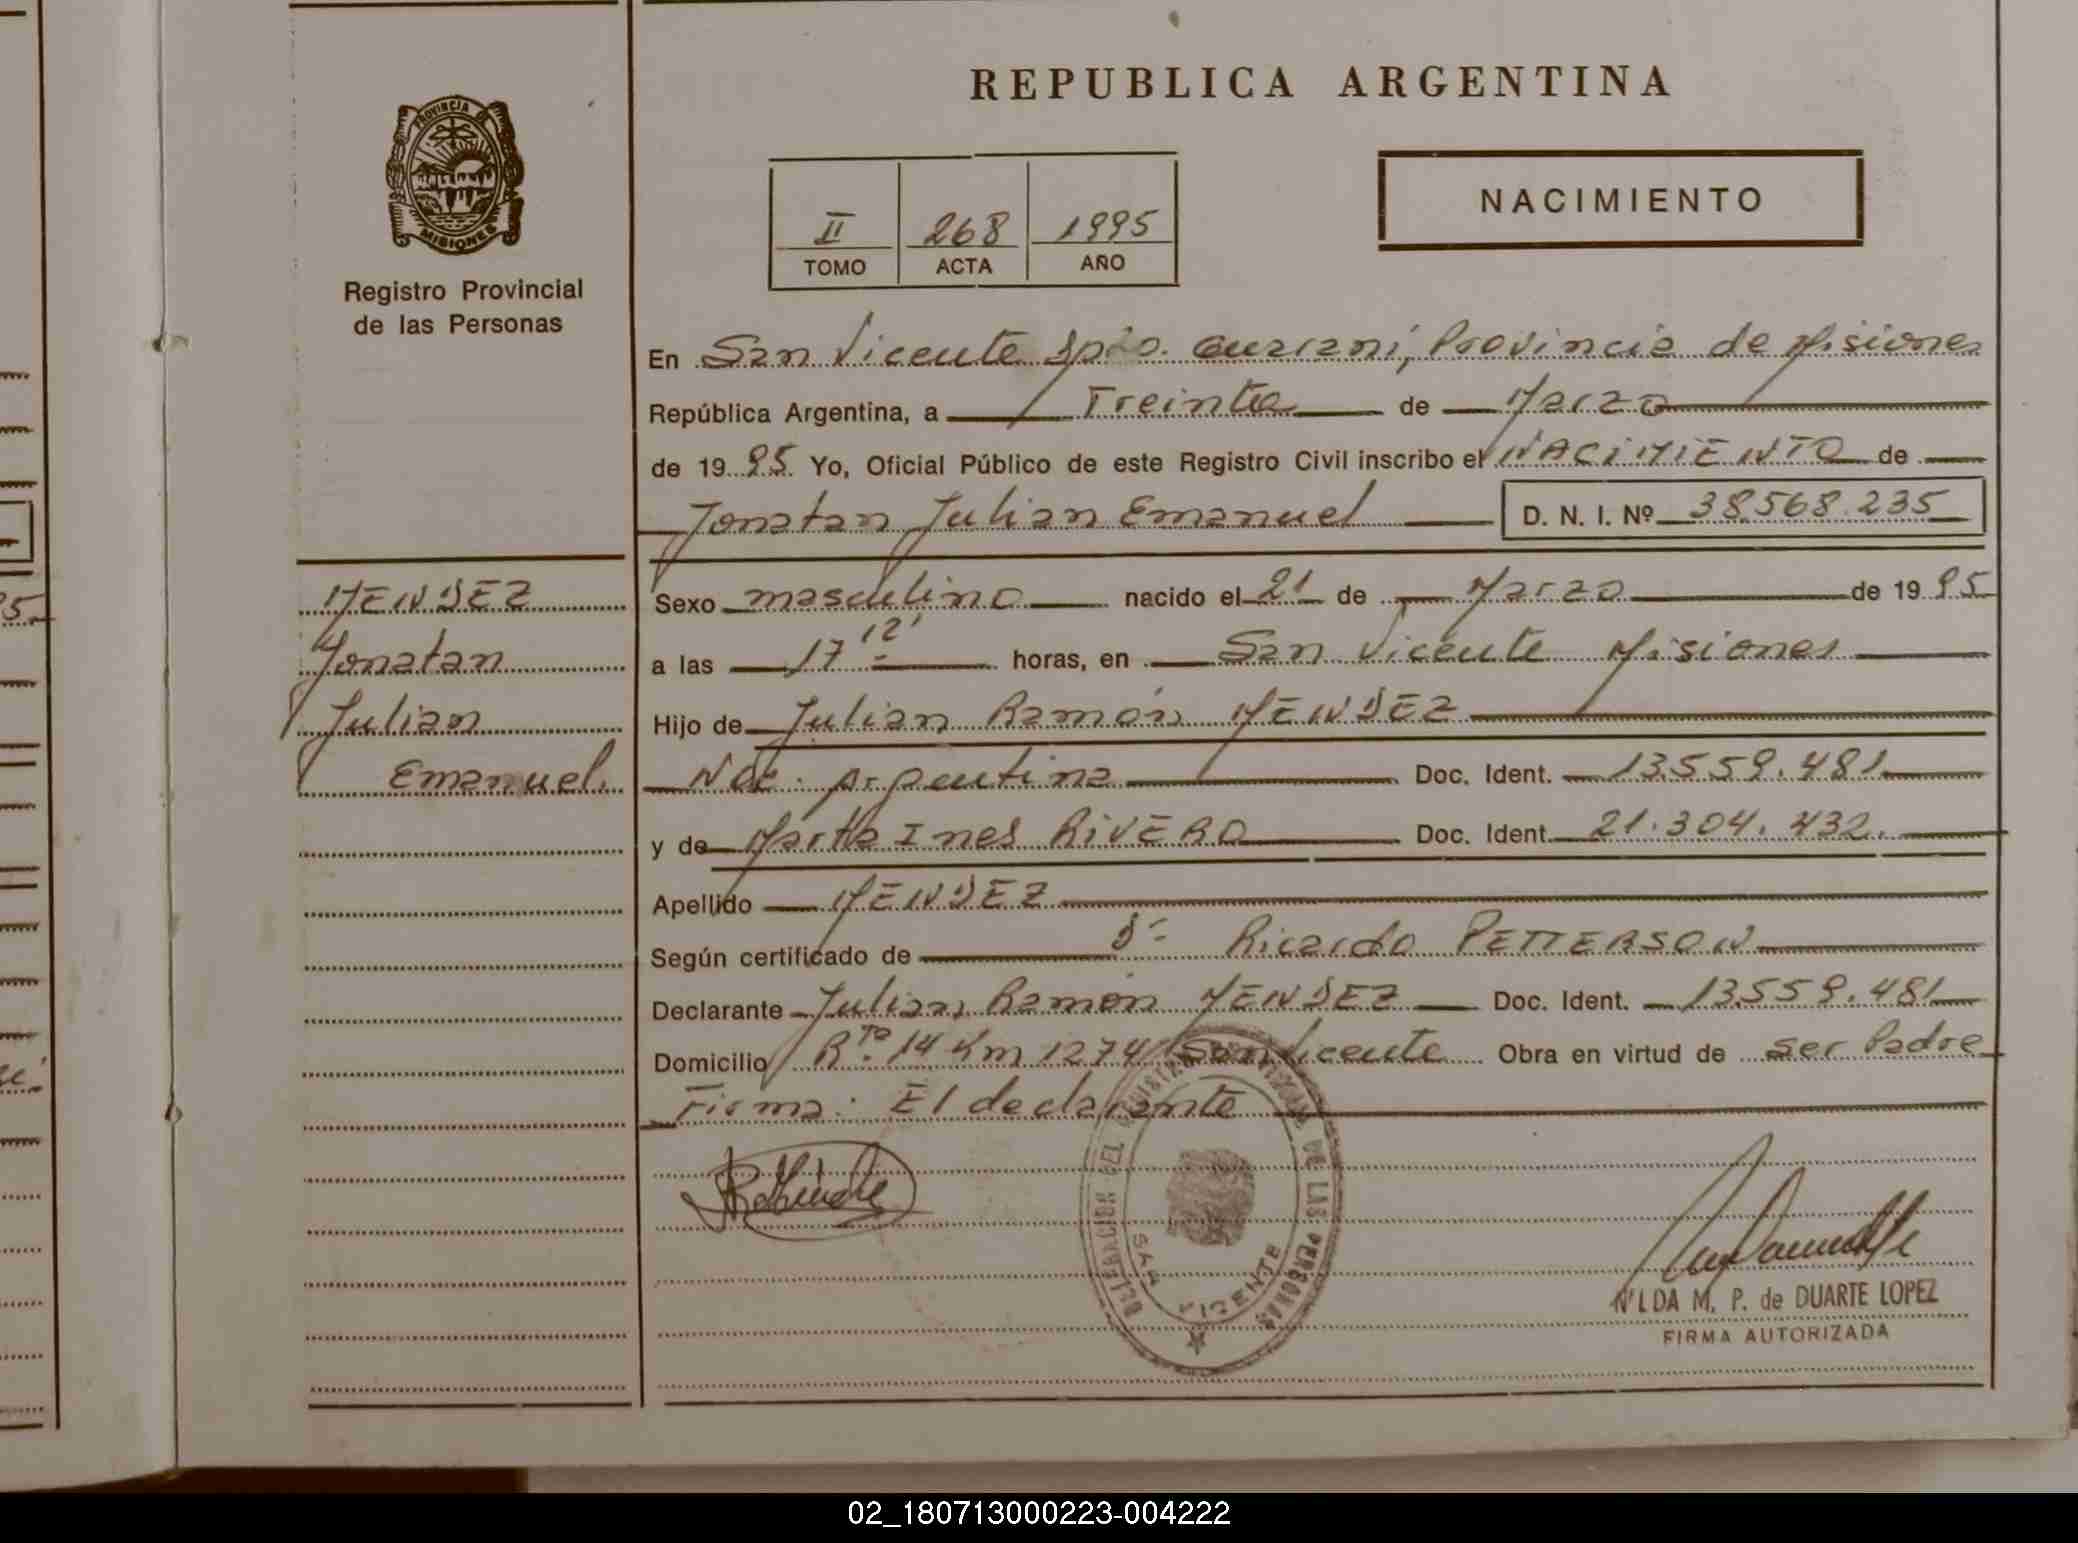 REPUBLICA ARGENTINA
PROVINCIA DE
MISIONES
Registro Provincial
de las Personas
NACIMIENTO
II 268 1995
TOMO ACTA AÑO
En San Vicente Dpto. Guarani, Provincia de Misiones
República Argentina, a Treinta de Marzo
de 19 95 Yo, Oficial Público de este Registro Civil inscribo el NACIMIENTO de
Jonatan Julian Emanuel D. N. I. Nº 38.568.235
MENDEZ
Jonatan
Julian
Emanuel.
Sexo masculino nacido el 21 de Marzo de 19 95
a las 17 12' horas, en San Vicente Misiones
Hijo de Julian Ramón MENDEZ
Nac. Argentina Doc. Ident. 13.559.481
y de Martha Ines RIVERO Doc. Ident. 21.304.432.
Apellido MENDEZ
Según certificado de Dr Ricardo PETTERSON
Declarante Julian Ramón MENDEZ Doc. Ident. 13.559.481
Domicilio Rta 14 Km 1274 San Vicente Obra en virtud de ser Padre
Firma: El declarante
DELEGACION DEL REGISTRO PROVINCIAL DE LAS PERSONAS
SAN VICENTE
NILDA M. P. de DUARTE LOPEZ
FIRMA AUTORIZADA
02_180713000223-004222